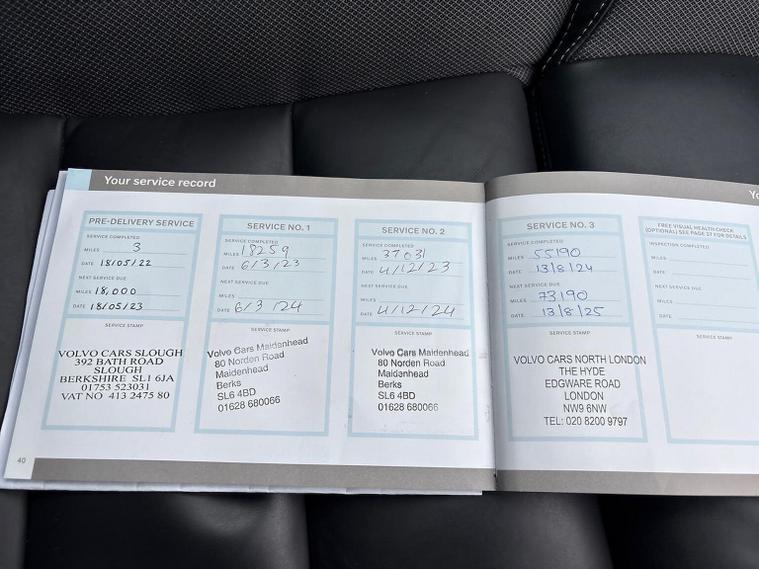 Your service record
Yo
PRE-DELIVERY SERVICE
SERVICE COMPLETED
MILES 3
DATE 18/05/22
NEXT SERVICE DUE
MILES 18,000
DATE 18/05/23
SERVICE STAMP
VOLVO CARS SLOUGH
392 BATH ROAD
SLOUGH
BERKSHIRE SL1 6JA
01753 523031
VAT NO 413 2475 80
SERVICE NO. 1
SERVICE COMPLETED
MILES 18259
DATE 6/3/23
NEXT SERVICE DUE
MILES
DATE 6/3/24
SERVICE STAMP
Volvo Cars Maidenhead
80 Norden Road
Maidenhead
Berks
SL6 4BD
01628 680066
SERVICE NO. 2
SERVICE COMPLETED
MILES 37031
DATE 4/12/23
NEXT SERVICE DUE
MILES
DATE 4/12/24
SERVICE STAMP
Volvo Cars Maidenhead
80 Norden Road
Maidenhead
Berks
SL6 4BD
01628 680066
SERVICE NO. 3
SERVICE COMPLETED
MILES 55190
DATE 13/8/24
NEXT SERVICE DUE
MILES 73190
DATE 13/8/25
SERVICE STAMP
VOLVO CARS NORTH LONDON
THE HYDE
EDGWARE ROAD
LONDON
NW9 6NW
TEL: 020 8200 9797
FREE VISUAL HEALTH CHECK
(OPTIONAL) SEE PAGE 37 FOR DETAILS
INSPECTION COMPLETED
MILES
DATE
NEXT SERVICE DUE
MILES
DATE
SERVICE STAMP
40